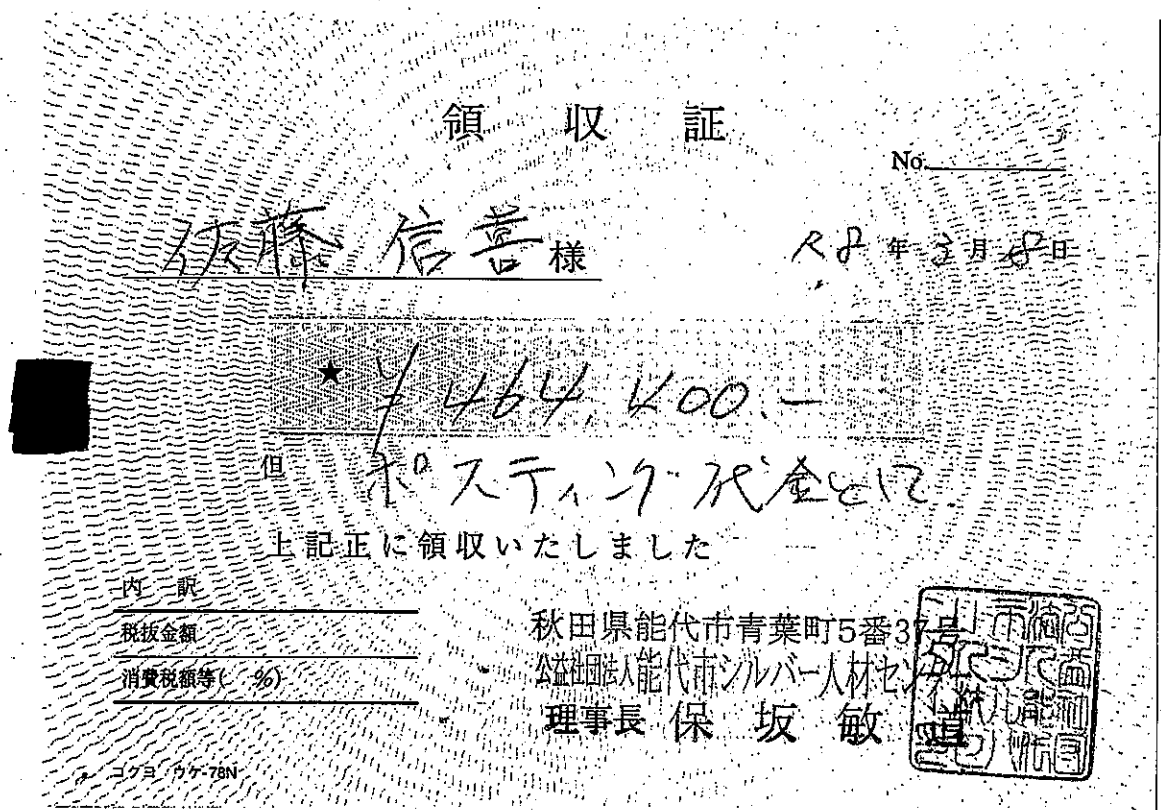 領収証
No.
佐藤 信喜 様
R8年3月8日
★ ¥464,400.-
但 ポスティング代金として
上記正に領収いたしました
内訳
税抜金額
消費税額等( %)
秋田県能代市青葉町5番37号
公益社団法人能代市シルバー人材センター
理事長 保坂敏道
コクヨ ウケ-78N